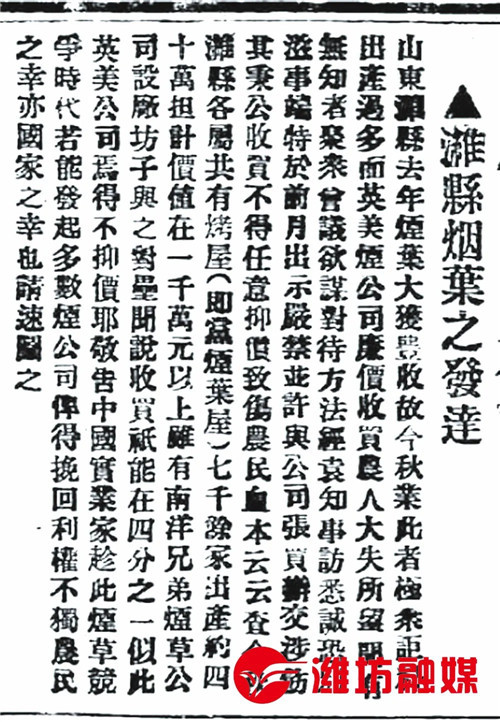 ▲濰縣烟葉之發達
山東濰縣去年煙葉大獲豊收故今秋業此者極衆詎
出產過多而英美煙公司廉價收買農人大失所望頗有
無知者聚衆會議欲謀對待方法經袁知事訪悉誠恐
滋事端特於前月出示嚴禁並許與公司張買辦交涉飭
其秉公收買不得任意抑價致傷農民血本云云查今
濰縣各屬共有烤屋(即煙葉屋)七千餘家出產約四
十萬担計價值在一千萬元以上雖有南洋兄弟煙草公
司設廠坊子與之對壘聞說收買祇能在四分之一似此
英美公司焉得不抑價耶敬告中國實業家趁此煙草競
爭時代若能發起多數煙公司俾得挽回利權不獨農民
之幸亦國家之幸也請速圖之
潍坊融媒